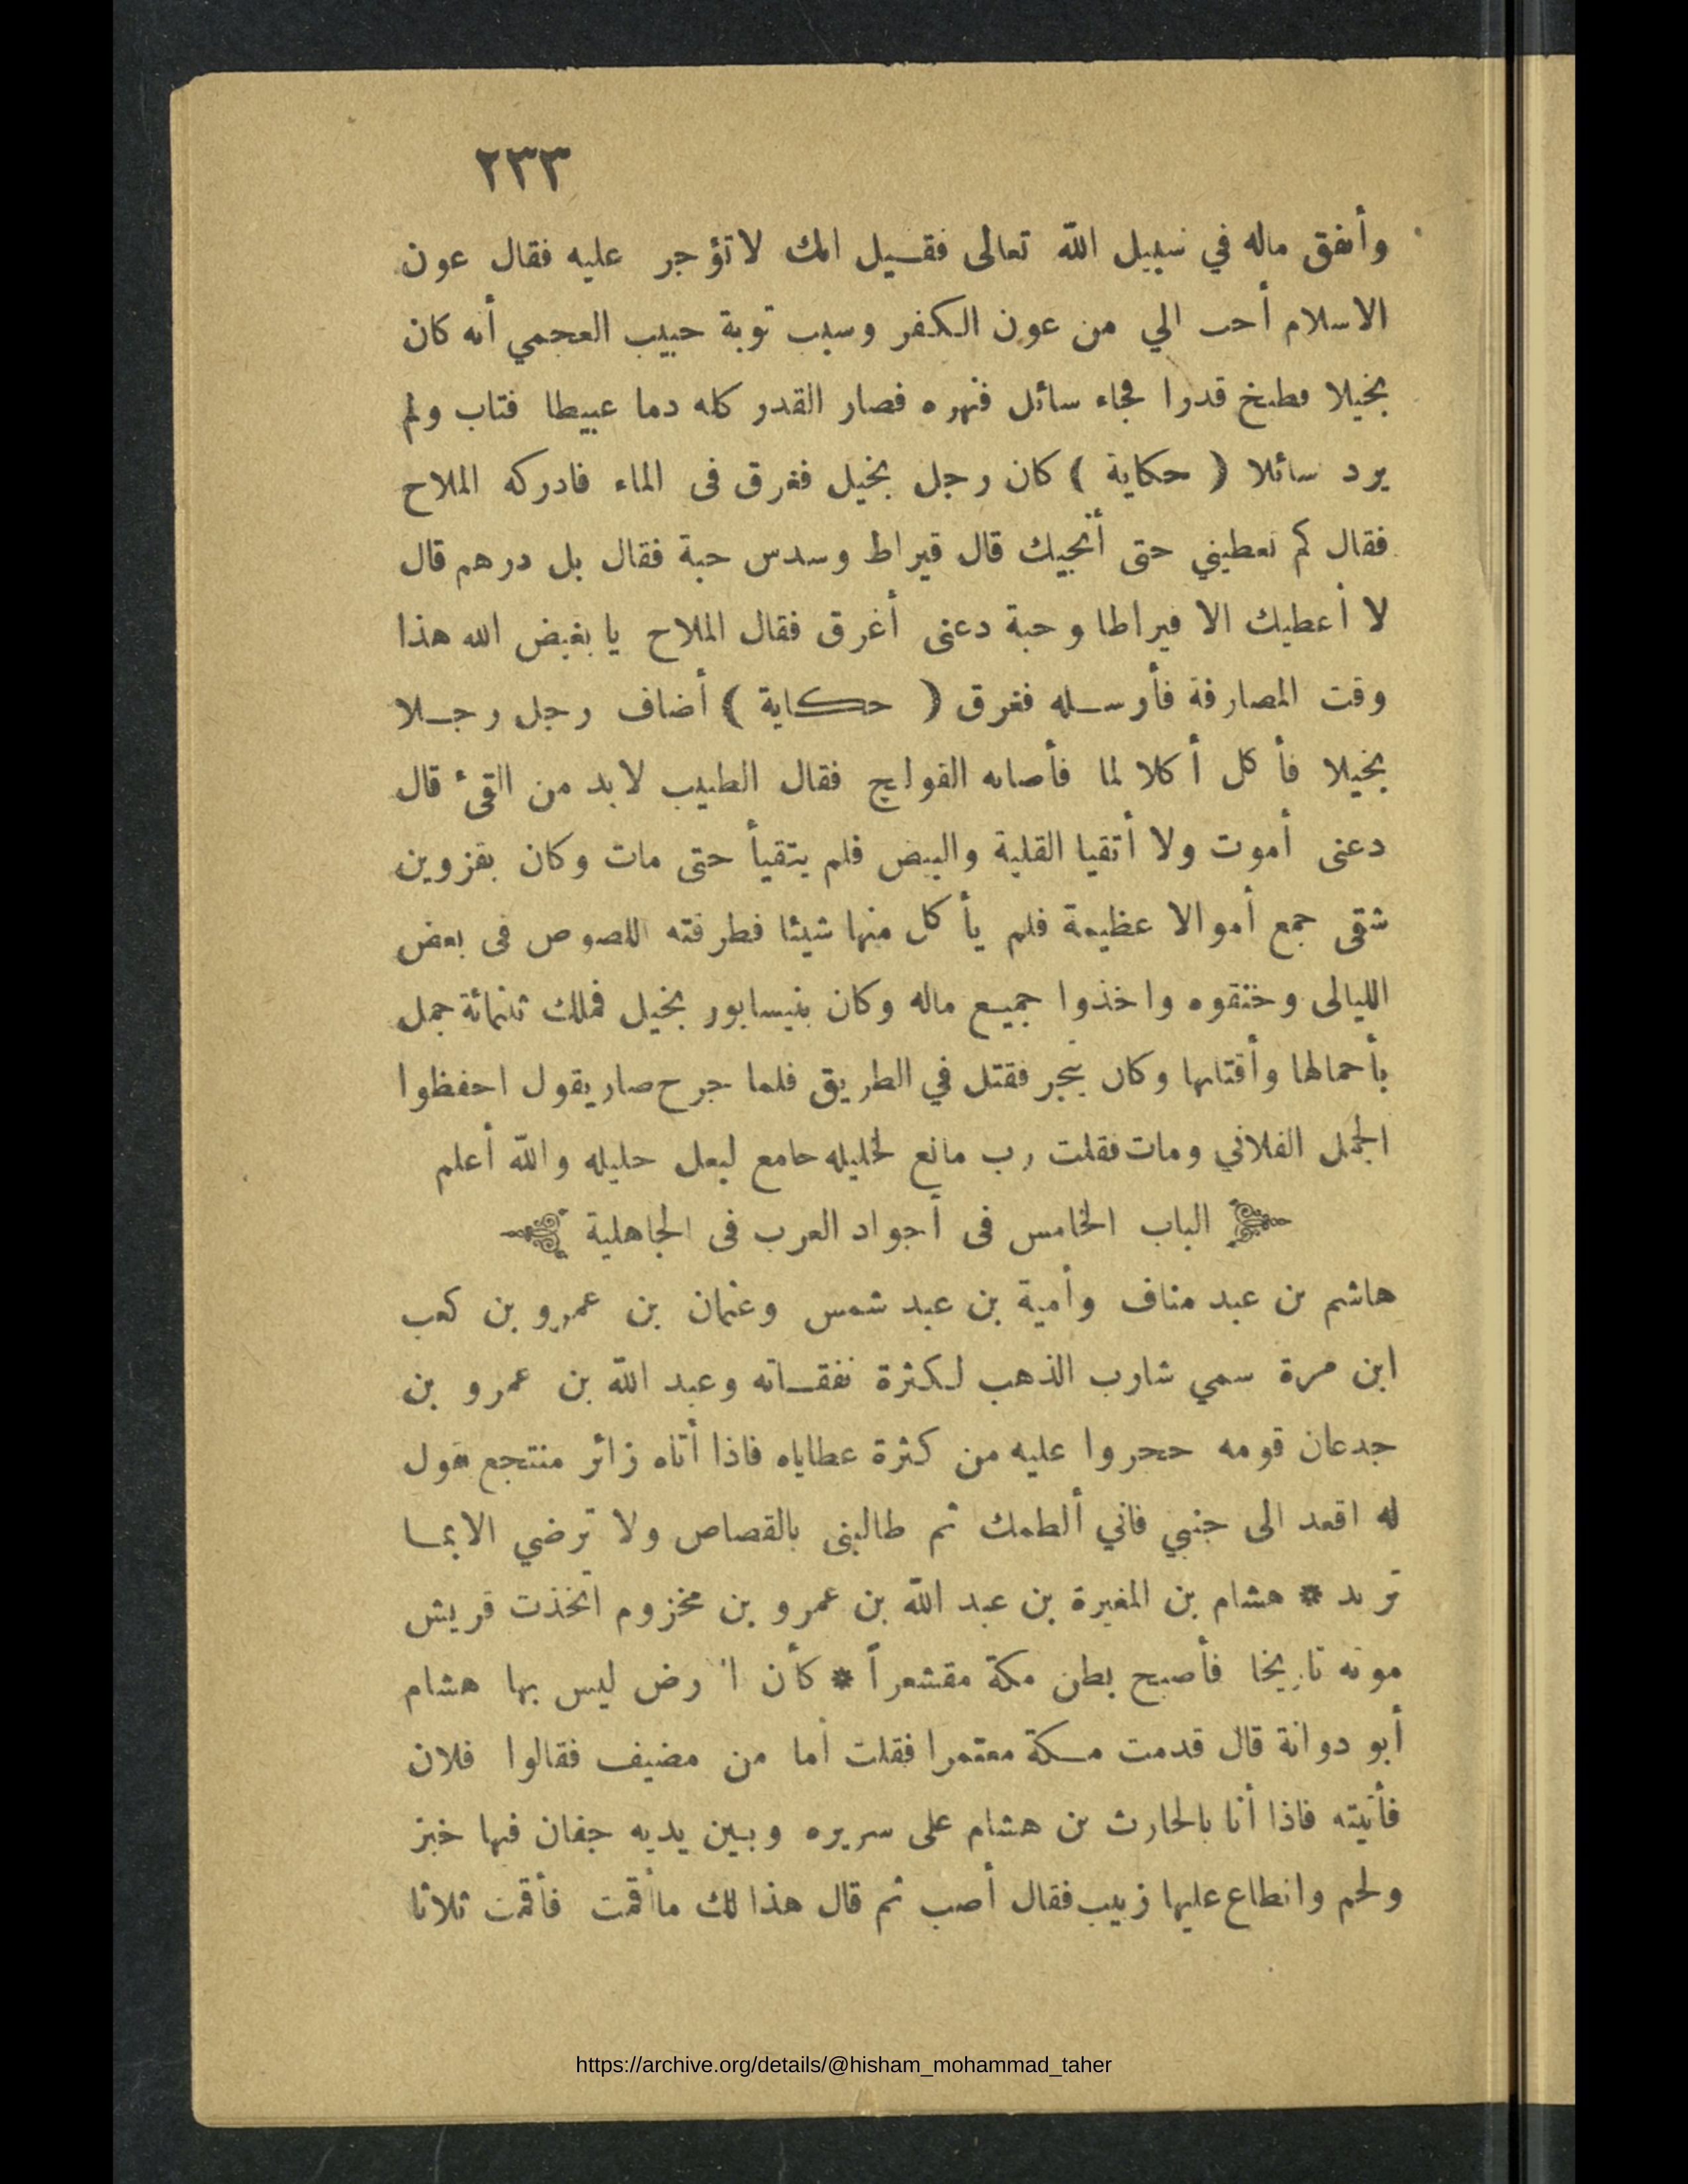 ٢٣٣
وأنفق ماله في سبيل الله تعالى فقيل انك لا تؤجر عليه فقال عون
الاسلام أحب الي من عون الكفر وسبب توبة حبيب العجمي أنه كان
بخيلا فطبخ قدرا فجاء سائل فنهره فصار القدر كله دما عبيطا فتاب ولم
يرد سائلا ( حكاية ) كان رجل بخيل فغرق فى الماء فادركه الملاح
فقال كم تعطيني حتى أنجيك قال قيراط وسدس حبة فقال بل درهم قال
لا أعطيك الا قيراطا وحبة دعنى أغرق فقال الملاح يا بغيض الله هذا
وقت المصارفة فأرسله فغرق ( حكاية ) أضاف رجل رجلا
بخيلا فأكل أكلا لما فأصابه القولنج فقال الطبيب لابد من القئ قال
دعنى أموت ولا أتقيا القلية والبيض فلم يتقيأ حتى مات وكان بقزوين
شقى جمع أموالا عظيمة فلم يأكل منها شيئا فطرقته اللصوص فى بعض
الليالى وخنقوه واخذوا جميع ماله وكان بنيسابور بخيل فملك ثلثمائة جمل
بأحمالها وأقتابها وكان يتجر فقتل في الطريق فلما جرح صار يقول احفظوا
الجمل الفلاني ومات فقلت رب مانع لخليله جامع لبعل حليله والله أعلم
الباب الخامس فى أجواد العرب فى الجاهلية
هاشم بن عبد مناف وأمية بن عبد شمس وعثمان بن عمرو بن كعب
ابن مرة سمي شارب الذهب لكثرة نفقاته وعبد الله بن عمرو بن
جدعان قومه حجروا عليه من كثرة عطاياه فاذا أتاه زائر منتجع يقول
له اقعد الى جنبي فاني ألطمك ثم طالبنى بالقصاص ولا ترضي الا بما
تريد * هشام بن المغيرة بن عبد الله بن عمرو بن مخزوم اتخذت قريش
موته تاريخا فأصبح بطن مكة مقشعراً * كأن الارض ليس بها هشام
أبو دوانة قال قدمت مكة معتمرا فقلت أما من مضيف فقالوا فلان
فأتيته فاذا أنا بالحارث بن هشام على سريره وبين يديه جفان فيها خبز
ولحم وانطاع عليها زبيب فقال أصب ثم قال هذا لك ما أقمت فأقمت ثلاثا
https://archive.org/details/@hisham_mohammad_taher